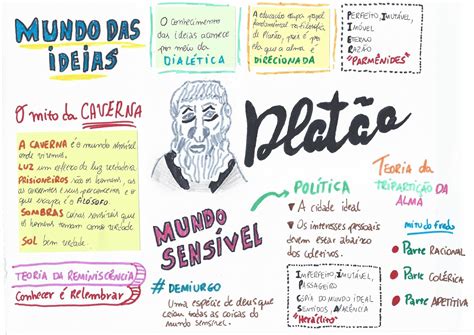 MUNDO DAS
IDEIAS
O conhecimento
das ideias acontece
por meio da
DIALÉTICA
A educação ocupa papel
fundamental na filosofia
de Platão, pois é por
ela que a alma é
DIRECIONADA
PERFEITO, IMUTÁVEL,
IMÓVEL
ETERNO
RAZÃO
"PARMÊNIDES"
O mito da CAVERNA
A CAVERNA é o mundo sensível
onde vivemos.
LUZ um reflexo da luz verdadeira
PRISIONEIROS são os homens, as
e o
que escapa é o FILÓSOFO.
SOMBRAS coisas sensíveis que
os homens tomam como verdade
SOL bem verdade.
Platão
TEORIA DA REMINISCÊNCIA
Conhecer é Relembrar
MUNDO
SENSÍVEL
# DEMIURGO
Uma espécie de deus que
criam todas as coisas do
mundo sensível.
POLÍTICA
A cidade ideal
Os interesses pessoais
devem estar abaixo
dos coletivos.
IMPERFEITO, IMUTÁVEL,
PASSAGEIRO
CÓPIA DO MUNDO IDEAL
SENTIDOS, APARÊNCIA
"HERÁCLITO"
TEORIA da
TRIPARTIÇÃO DA
ALMA
mito do Fedro
Parte RACIONAL
Parte COLÉRICA
Parte APETITIVA